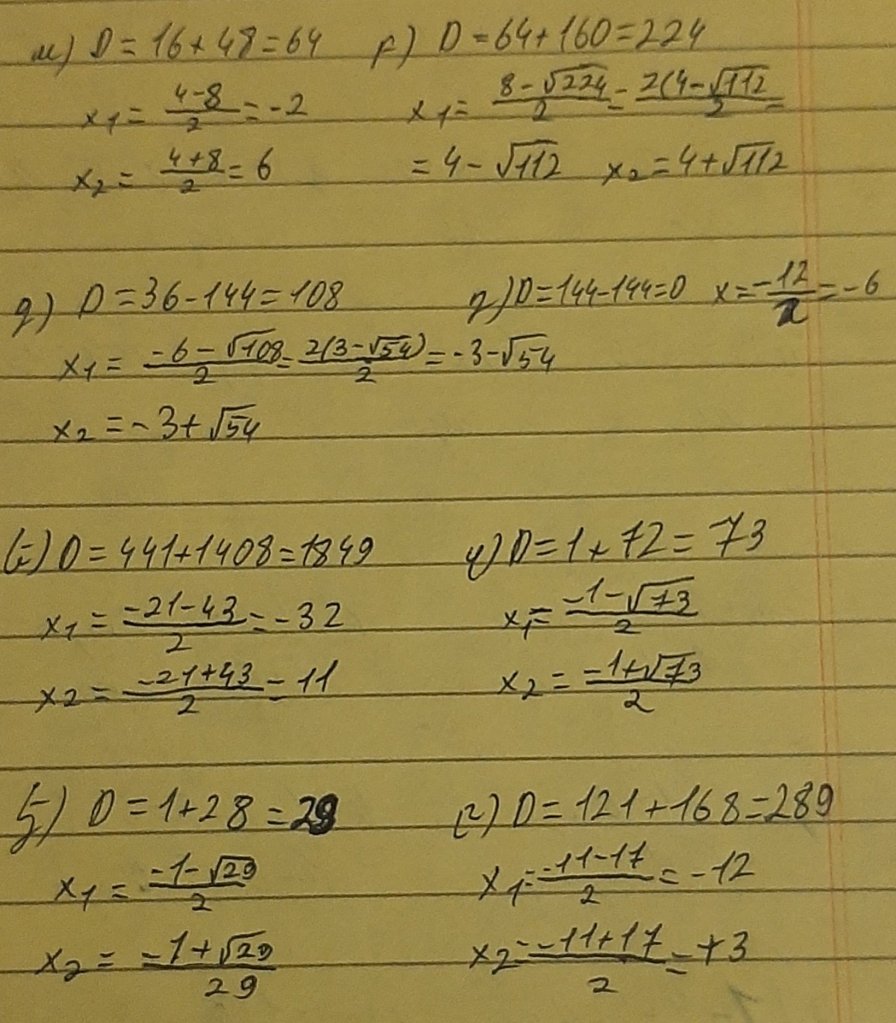 м) D=16+48=64   г) D=64+160=224
x₁ = (4-8)/2 = -2   x₁ = (8-√224)/2 = 2(4-√112)/2 =
x₂ = (4+8)/2 = 6   = 4-√112   x₂ = 4+√112
g) D=36-144=108   D=144-144=0   x=-12/2=-6
x₁ = (-6-√108)/2 = 2(3-√54)/2 = -3-√54
x₂ = -3+√54
D=441+1408=1849   D=1+72=73
x₁ = (-21-43)/2 = -32   x₁ = (-1-√73)/2
x₂ = (-21+43)/2 = 11   x₂ = (-1+√73)/2
D=1+28=29   D=121+168=289
x₁ = (-1-√29)/2   x₁ = (-11-17)/2 = -12
x₂ = (-1+√29)/29   x₂ = (-11+17)/2 = +3